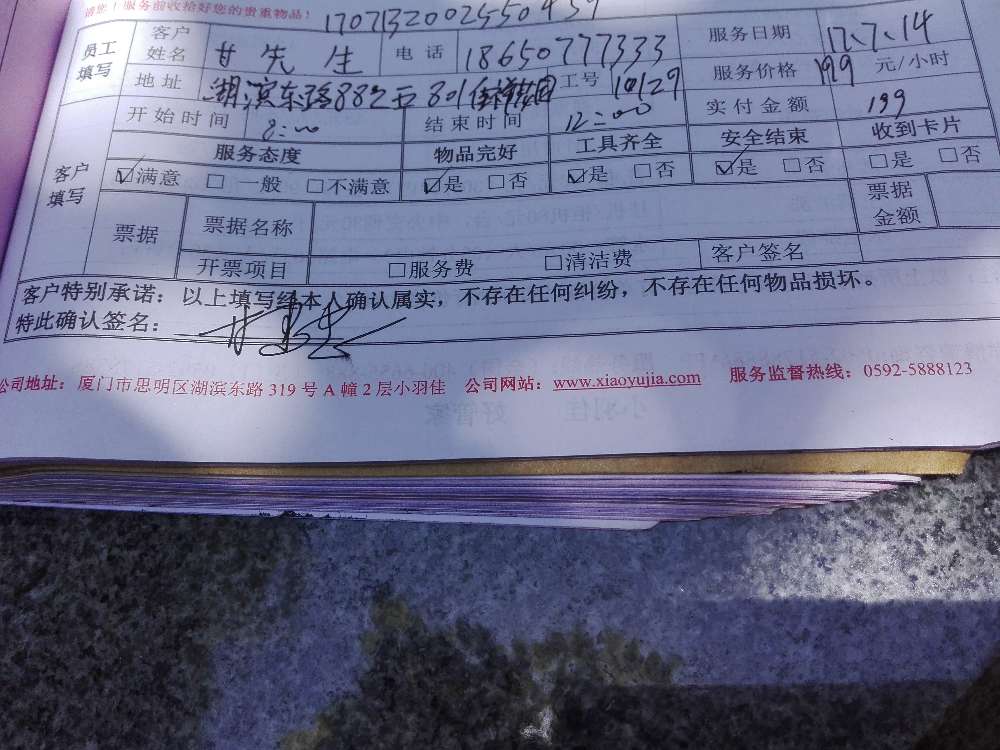 请您！服务前收拾好您的贵重物品！ 1707132002550459
员工填写 客户姓名 甘先生 电话 18650777333 服务日期 17.7.14
地址 湖滨东路88之石801 工号 10129 服务价格 199 元/小时
开始时间 8:00 结束时间 12:00 实付金额 199
客户填写 服务态度 物品完好 工具齐全 安全结束 收到卡片
☑满意 □一般 □不满意 ☑是 □否 ☑是 □否 ☑是 □否 □是 □否
票据 票据名称 票据金额
开票项目 □服务费 □清洁费 客户签名
客户特别承诺：以上填写经本人确认属实，不存在任何纠纷，不存在任何物品损坏。
特此确认签名：
公司地址：厦门市思明区湖滨东路 319 号 A 幢 2 层小羽佳 公司网站：www.xiaoyujia.com 服务监督热线：0592-5888123